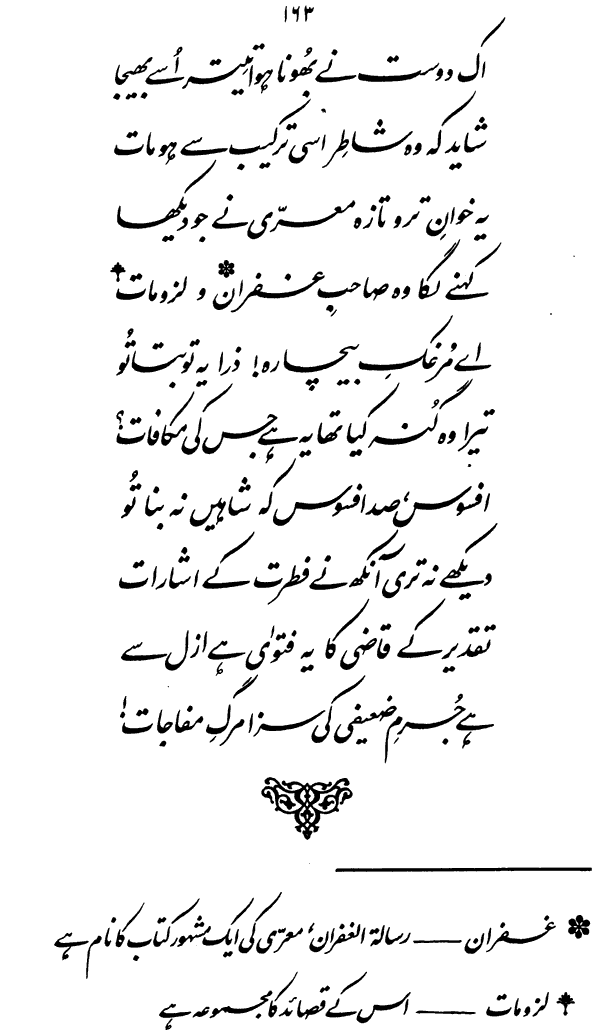 ۱۶۳
اک دوست نے بھُونا ہوا تِیتر اُسے بھیجا
شاید کہ وہ شاطِر اسی ترکیب سے ہو مات
یہ خوانِ تر و تازہ معرّی نے جو دیکھا
کہنے لگا وہ صاحبِ غفران* و لزومات†
اے مُرغکِ بیچارہ! ذرا یہ تو بتا تُو
تیرا وہ گُنہ کیا تھا یہ ہے جس کی مکافات؟
افسوس، صد افسوس کہ شاہیں نہ بنا تُو
دیکھے نہ تری آنکھ نے فطرت کے اشارات
تقدیر کے قاضی کا یہ فتوٰی ہے ازل سے
ہے جُرمِ ضعیفی کی سزا مرگِ مفاجات!
* غفران —— رسالۃ الغفران، معرّی کی ایک مشہور کتاب کا نام ہے
† لزومات —— اس کے قصائد کا مجموعہ ہے